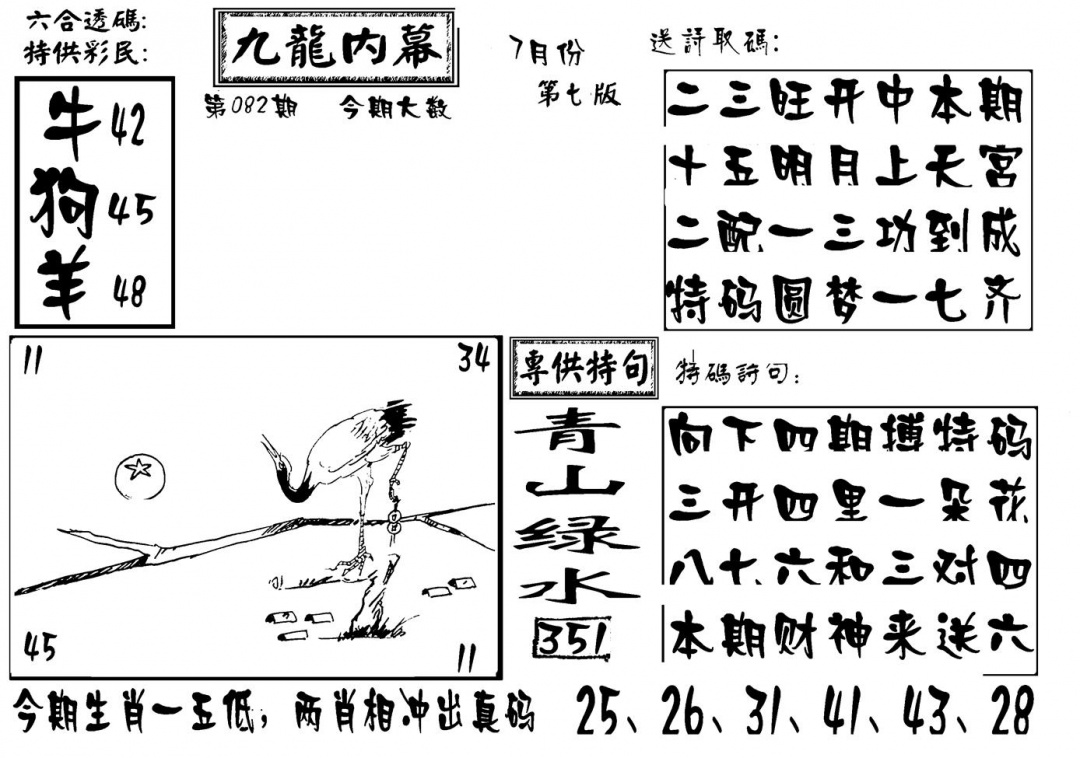 六合透碼:
特供彩民:
牛 42
狗 45
羊 48
九龍内幕
第082期 今期大数
7月份
第七版
送詩取碼:
二三旺开中本期
十五明月上天宫
二配一三功到成
特码圆梦一七齐
11
34
45
11
專供特句
青
山
绿
水
351
特碼詩句:
向下四期搏特码
三开四里一朵花
八十六和三对四
本期财神来送六
今期生肖一五低,两肖相冲出真码 25、26、31、41、43、28